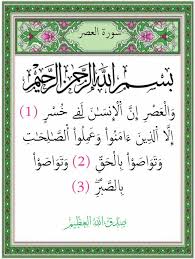 سورة العصر
بسم الله الرحمن الرحيم
وَالْعَصْرِ إِنَّ الْإِنسَٰنَ لَفِى خُسْرٍ (1)
إِلَّا الَّذِينَ ءَامَنُوا۟ وَعَمِلُوا۟ الصَّٰلِحَٰتِ
وَتَوَاصَوْا۟ بِالْحَقِّ (2) وَتَوَاصَوْا۟
بِالصَّبْرِ (3)
صدق الله العظيم